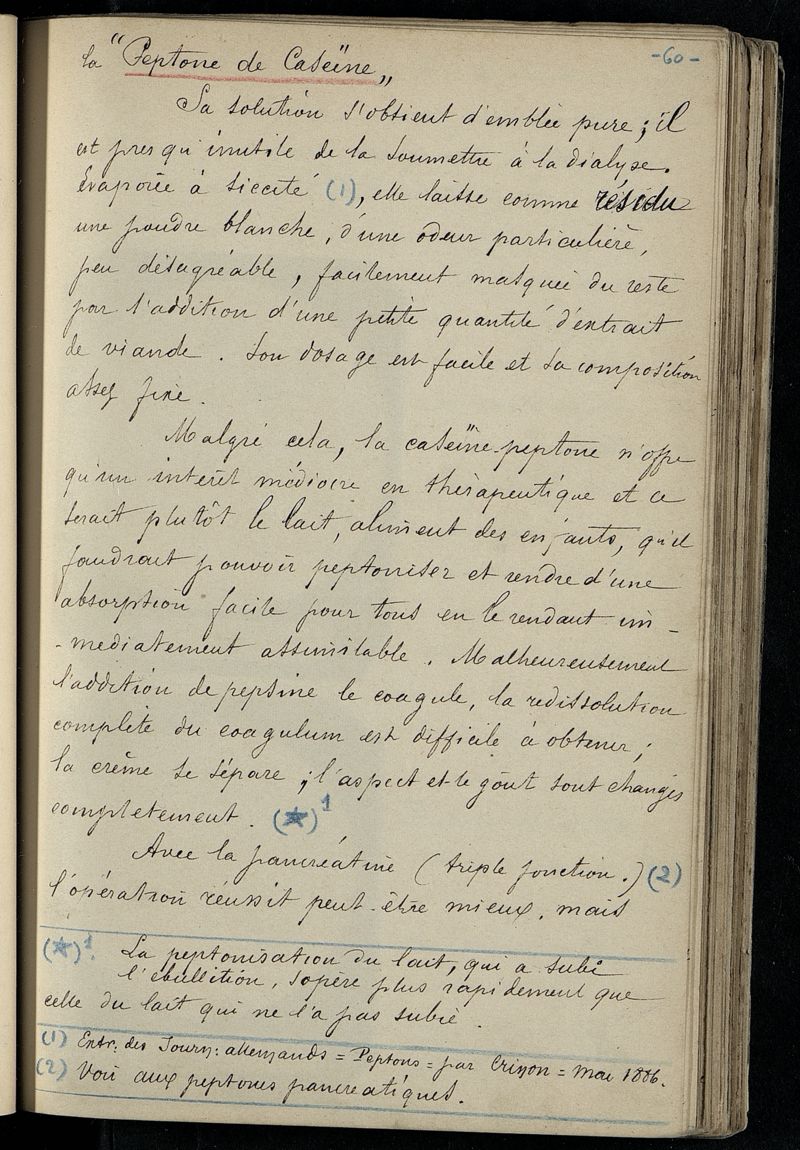 -60-
la "Peptone de Caséïne"
Sa solution s'obtient d'emblée pure ; il
est presqu'inutile de la soumettre à la dialyse.
Évaporée à siccité (1), elle laisse comme résidu
une poudre blanche, d'une odeur particulière,
peu désagréable, facilement masquée du reste
par l'addition d'une petite quantité d'extrait
de viande. Son dosage est facile et sa composition
assez fixe.
Malgré cela, la caséïne-peptone n'offre
qu'un intérêt médiocre en thérapeutique et ce
serait plutôt le lait, aliment des enfants, qu'il
faudrait pouvoir peptoniser et rendre d'une
absorption facile pour tous en le rendant im-
-médiatement assimilable. Malheureusement
l'addition de pepsine le coagule, la redissolution
complète du coagulum est difficile à obtenir ;
la crème se sépare ; l'aspect et le goût sont changés
complètement. (★)1
Avec la pancréatine (triple fonction.) (2)
l'opération réussit peut-être mieux, mais
(★)1. La peptonisation du lait, qui a subi
l'ébullition, s'opère plus rapidement que
celle du lait qui ne l'a pas subie.
(1) Extr: des Journ: allemands = Peptons = par Crinon = Mai 1886.
(2) Voir aux peptones pancréatiques.